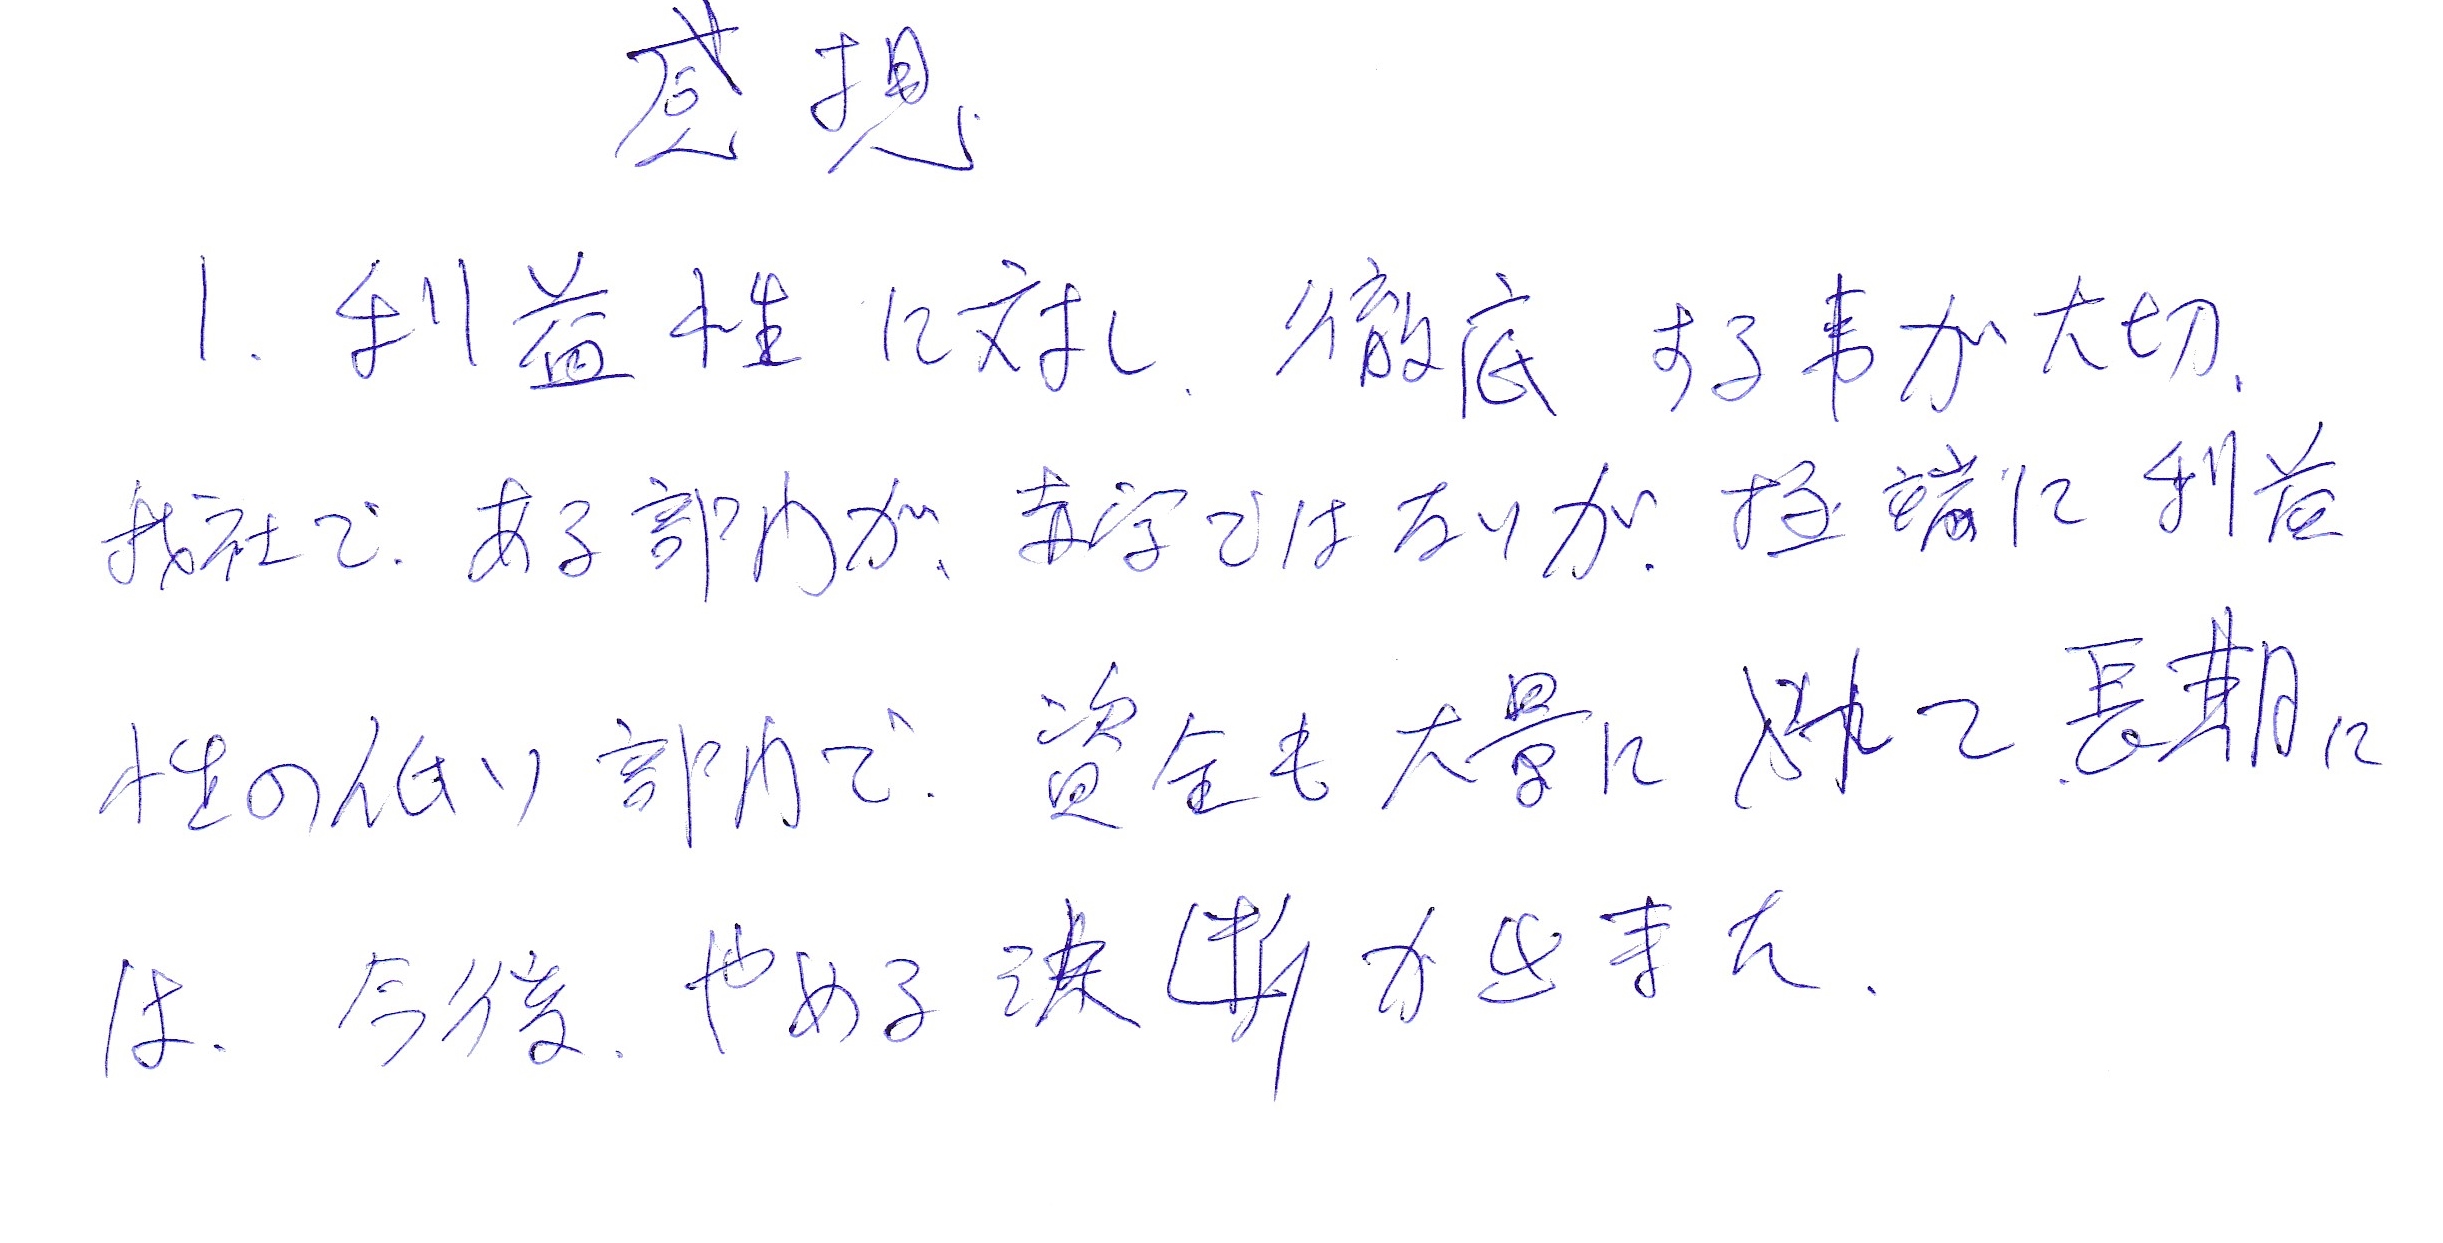 感想
1. 利益性に対し、徹底する事が大切、
我社で、ある部内が、赤字ではないが、極端に利益
性の低い部内で、資金も大量に て、長期に
は、今後、やめる決断が出来た。